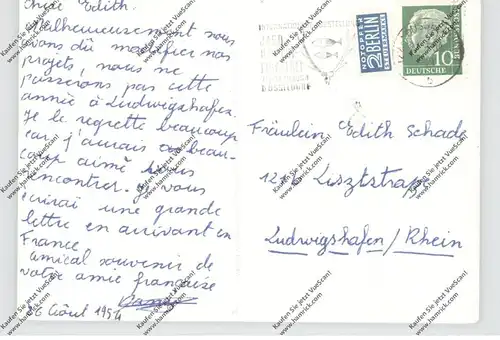 Chère Edith.
Malheureusement nous
avons dû modifier nos
projets, nous ne
passerons pas cette
année à Ludwigshafen.
Je le regrette beaucoup
car j'aurais beau-
coup aimé vous
rencontrer. Je vous
écrirai une grande
lettre en arrivant en
France
amical souvenir de
votre amie française
26 Août 1954
NOTOPFER
2 BERLIN
STEUERMARKE
DEUTSCHE BUNDESPOST
10
Fräulein Edith Schade
126 Lisztstraße
Ludwigshafen/Rhein
Kaufen Sie jetzt VueScan!
www.hamrick.com